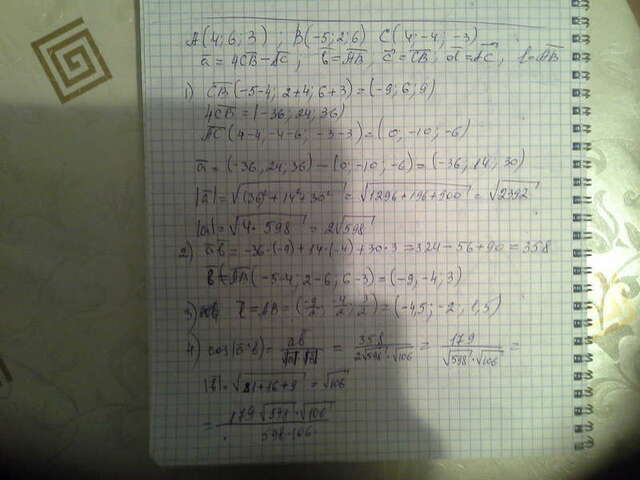 A(4; 6; 3) ; B(-5; 2; 6) C(4; -4; -3)
a̅ = 4C̅B̅ - A̅C̅ ; b̅ = A̅B̅, c̅ = C̅B̅, d̅ = A̅C̅, l = A̅B̅
1) C̅B̅(-5-4; 2+4; 6+3) = (-9; 6; 9)
4C̅B̅ = (-36; 24; 36)
A̅C̅(4-4, -4-6; -3-3) = (0, -10; -6)
a̅ = (-36, 24; 36) - (0; -10; -6) = (-36, 14; 30)
|a̅| = √(36)² + 14² + 30² = √1296 + 196 + 900 = √2392
|a| = √4 · 598 = 2√598
2) a̅b̅ = -36·(-9) + 14·(-4) + 30·3 = 324 - 56 + 90 = 358
b̅ = A̅B̅(-5-4; 2-6; 6-3) = (-9, -4; 3)
3) = AB = (-9/2; -4/2; 3/2) = (-4,5; -2; 1,5)
4) cos(a̅^b̅) = ab/|a|·|b| = 358/2√598·√106 = 179/√598·√106 =
|b̅| = √81+16+9 = √106
= 179√598·√106/598·106